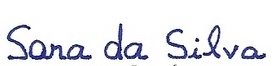 Sara da Silva